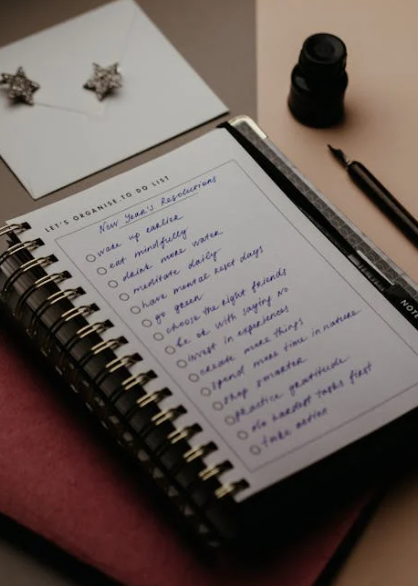 LET'S ORGANISE TO DO LIST
New Year's Resolutions
wake up earlier
eat mindfully
drink more water
meditate daily
have mental reset days
go green
choose the right friends
be ok with saying no
invest in experiences
create more things
spend more time in nature
shop smarter
practice gratitude
do hardest tasks first
take action
NOTE